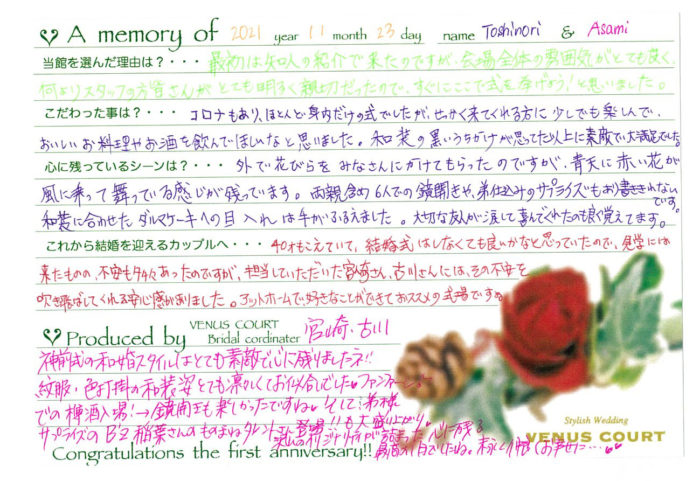 A memory of 2021 year 11 month 23 day name Toshinori & Asami
当館を選んだ理由は？・・・最初は知人の紹介で来たのですが、会場全体の雰囲気がとても良く、
何よりスタッフの方皆さんがとても明るく親切だったので、すぐにここで式を挙げよう！と思いました。
こだわった事は？・・・コロナもあり、ほとんど身内だけの式でしたが、せっかく来てくれる方に少しでも楽しんで、
おいしいお料理やお酒を飲んでほしいなと思いました。和装の黒いうちかけが思ってた以上に素敵で大満足でした。
心に残っているシーンは？・・・外で花びらをみなさんにかけてもらったのですが、青天に赤い花が
風に乗って舞っている感じが残っています。両親含め6人での鏡開きや、弟仕込みのサプライズもおき書ききれない
です。
和装に合わせたダルマケーキへの目入れは手がふるえました。大切な友人が涙して喜んでくれたのも良く覚えてます。
これから結婚を迎えるカップルへ・・・40才もこえていて、結婚式はしなくても良いかなと思っていたので、見学には
来たものの、不安も多々あったのですが、担当していただいた宮崎さん、古川さんには、その不安を
吹き飛ばしてくれる安心感がありました。アットホームで好きなことができておススメの式場です。
Produced by VENUS COURT Bridal cordinater 宮崎・古川
神前式の和婚スタイルはとても素敵で心に残りましたネ!!
紋服・色打掛の和装姿とても凛々しくてお似合いでした♥ファンファーレ
での樽酒入場！→鏡開きも楽しかったですね♥そして弟様
サプライズのB'z稲葉さんのものまねタレントさん登場!!も大盛り上がり♥
オリジナリティが詰まった心に残る
Congratulations the first anniversary!! 結婚式でしたね。末永くお幸せに…♥♥
Stylish Wedding
VENUS COURT